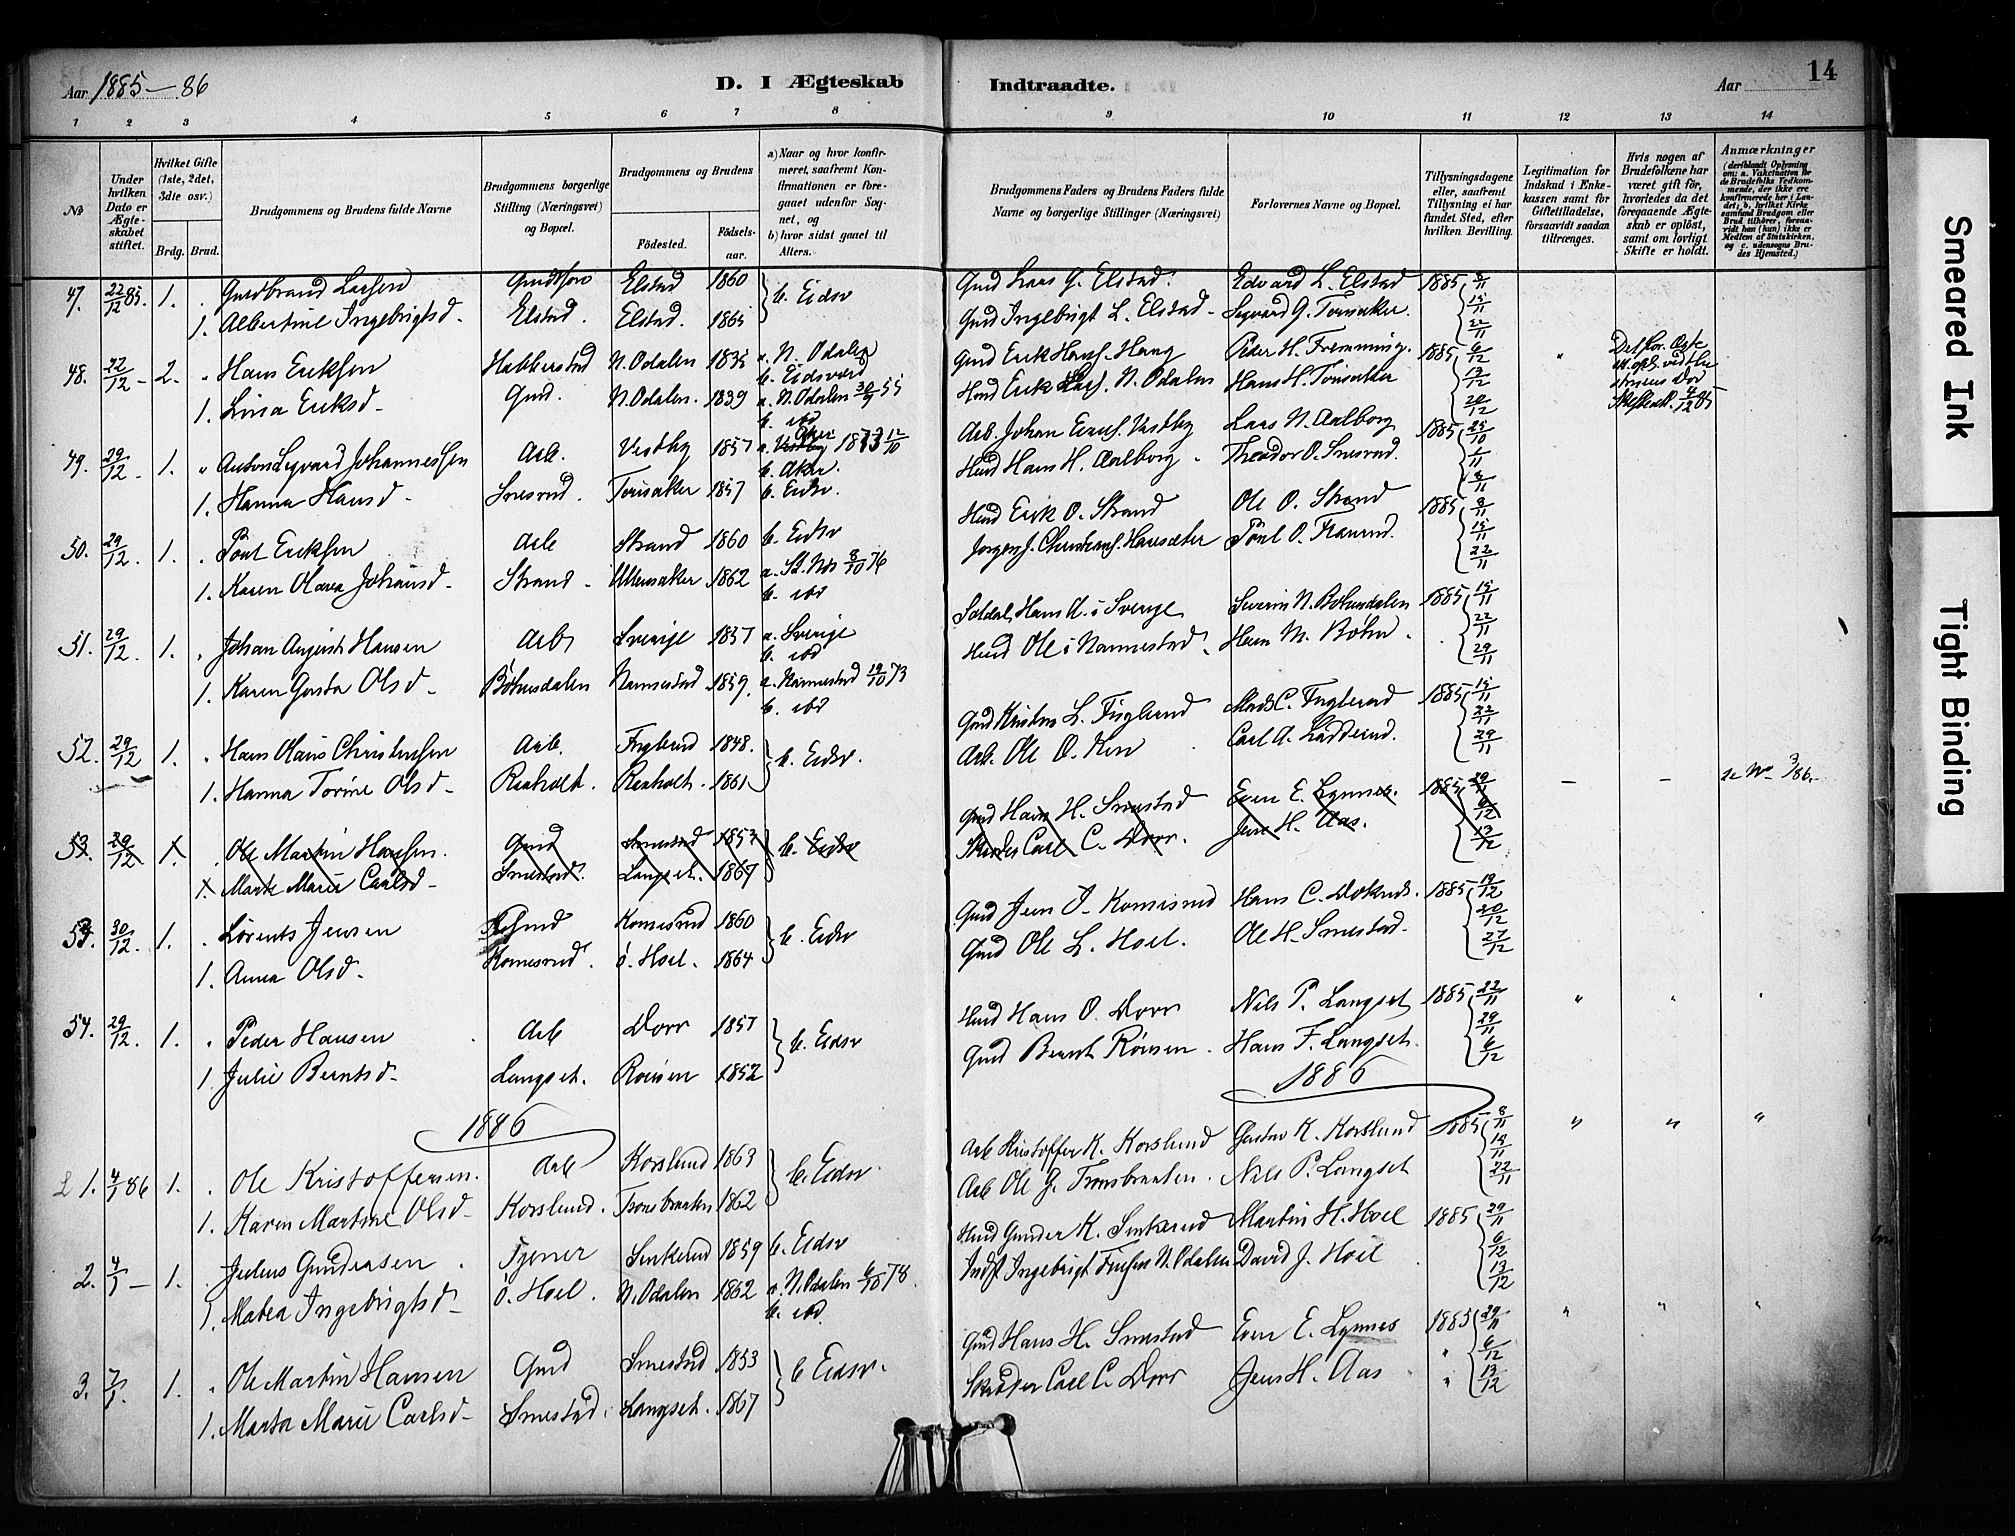 Aar 1885-86
D. I Ægteskab
Indtraadte.
Aar
14
1 2 3 4 5 6 7 8 9 10 11 12 13 14
No
Under hvilken Dato er Ægteskabet stiftet.
Hvilket Gifte (1ste, 2det, 3die osv.)
Brdg. Brud.
Brudgommens og Brudens fulde Navne
Brudgommens borgerlige Stilling (Næringsvei) og Bopæl.
Brudgommens og Brudens
Fødested.
Fødselsaar.
a) Naar og hvor konfirmeret, saafremt Konfirmationen er foregaaet udenfor Sognet, og
b) hvor sidst gaaet til Alters.
Brudgommens Faders og Brudens Faders fulde Navne og borgerlige Stillinger (Næringsvei)
Forlovernes Navne og Bopæl.
Tillysningsdagene eller, saafremt Tillysning ei har fundet Sted, efter hvilken Bevilling.
Legitimation for Indskud i Enkekassen samt for Giftetilladelse, forsaavidt saadan tiltrænges.
Hvis nogen af Brudefolkene har været gift før, hvorledes da det foregaaende Ægteskab er opløst, samt om lovligt Skifte er holdt.
Anmærkninger
47. 22/12 85. 1. Gudbrand Larsen Elstad 1860 b. Eidsv Gmd Lars G. Elstad. Edvard L. Elstad 1885 8/11
1. Albertine Ingebrigtsd. Elstad. Elstad. 1865 Gmd Ingebrigt L. Elstad Segvard G. Tonsaker. 15/11 22/11
48. 22/12 - 2. Hans Eriksen Habberstad N. Odalen 1835 a. N. Odalen b. Eidsvold Gmd Erik Hans. Haug Peder H. Fremming. 1885 6/12
1. Lina Eriksd. Gmd. N. Odalen. 1839 a. N. Odalen 55 b. ibd Hmd Erik Lars. N. Odalen Hans H. Tonsaker 13/12 20/12
49. 29/12 1. Anton Segvard Johannessen Arb. Vestby 1857 Aker 1873 b. Aker. Arb. Johan Vestby Lars N. Aalborg 1885 25/10
1. Hanna Hansd. Tonsaker 1857 b. Eidsv. Hmd Hans H. Aalborg. Theodor O. 1/11 8/11
50. 29/12. 1. Poul Eriksen Arb Strand 1860 b. Eidsv Hmd Erik O. Strand Ole O. Strand 1885 8/11
1. Karen Olava Johansd. Strand. Ullensaker 1862 a. 8/10 76 b. ibd Poul O. 15/11 22/11
51. 29/12. 1. Johan August Hansen Arb Sverige 1857 a. Sverige b. ibd Soldat Hans A. i Sverige Severin N. Bøhnsdalen 1885 15/11
1. Karen Olsd. Bøhnsdalen Nannestad 1859. a. Nannestad 19/10 73 b. ibd Hmd Ole i Nannestad. Hern M. Bøhn. 22/11 29/11
52. 29/12 1. Hans Olaus Christensen Arb. Fuglerud 1848. b. Eidsv. Gmd Kristen L. Fuglerud Mads C. Fuglerud 1885 15/11
1. Hanna Torine Olsd. Raaholt. Raaholt. 1861 Arb. Ole O. Carl A. Ladderud. 22/11 29/11
3/86.
53. 29/12. 1. Ole Martin Hansen. Gmd Smestad 1853 b. Eidsv Gmd Hans H. Smestad Even E. Lynnes. 1885 29/11
1. Marte Marie Carlsd. Smestad. Langset. 1867 Skræder Carl C. Dorr. Jens H. Aas. 6/12 13/12
53. 30/12. 1. Lorents Jensen Komesrud 1860 b. Eidsv Gmd Jens O. Komesrud Hans C. Doknes. 1885 13/12
1. Anna Olsd. Komesrud. ö. Hoel. 1864 Gmd Ole L. Hoel. Ole H. Smestad. 20/12 27/12
54. 29/12. 1. Peder Hansen Arb Dorr 1857 b. Eidsv Hmd Hans O. Dorr Nils P. Langset 1885 22/11
1. Julie Berntsd. Langset. Röisen 1852 Gmd Bernt Röisen. Hans F. Langset. 29/11 6/12
1886
1886
1. 4/1 86 1. Ole Kristoffersen. Arb Korslund 1863 b. Eidsv. Arb Kristoffer K. Korslund Gustav K. Korslund 1885 8/11
1. Karen Martine Olsd. Korslund. Tronsbraaten 1862 Arb Ole G. Tronsbraaten. Nils P. Langset 15/11 22/11
2. 4/1 - 1. Julius Gundersen. Senkerud 1859 b. Eidsv Hmd Gunder K. Senkerud Martin H. Hoel 1885 29/11
1. Mabea Ingebrigtsd. ö. Hoel. N. Odalen 1862 a. N. Odalen 6/10 78. b. ibd. Indst Ingebrigt N. Odalen David J. Hoel 6/12 13/12
3. 7/1. 1. Ole Martin Hansen Gmd Smestad 1853 b Eidsv. Gmd Hans H. Smestad Even E. Lynnes 1885 29/11
1. Marta Marie Carlsd. Smestad. Langset. 1867 Skræder Carl C. Dorr Jens H. Aas 6/12 13/12
Smeared Ink
Tight Binding